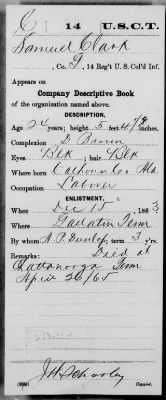 C 14 U.S.C.T.
Samuel Clark
, Co. G, 14 Reg't U. S. Col'd Inf.
Appears on
Company Descriptive Book
of the organization named above.
DESCRIPTION.
Age 24 years; height 5 feet 4 1/2 inches.
Complexion D. Brown
Eyes Blk ; hair Blk
Where born Calhoun Co. Ala.
Occupation Laborer
ENLISTMENT.
When Dec 15 , 1863
Where Gallatin Tenn
By whom A. P. Dunlop; term 3 y'rs.
Remarks: Died at
Chattanooga Tenn
Apr 26/65
J. H. Schooley
Copyist.